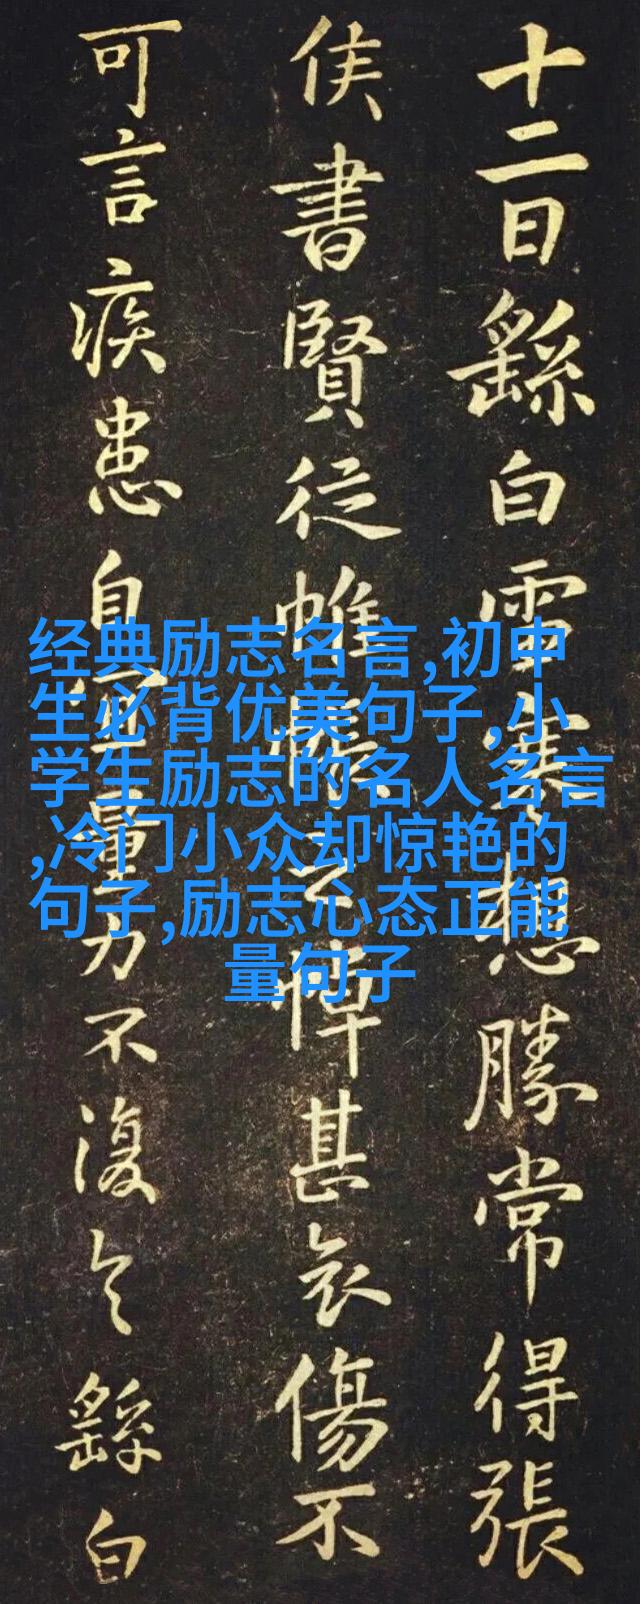 十二日繇白雪寒想勝常得張
侯書賢從帷帳之悼甚哀傷不
可言疾患自宜量力不復繇白
经典励志名言,初中
生必背优美句子,小
学生励志的名人名言
,冷门小众却惊艳的
句子,励志心态正能
量句子